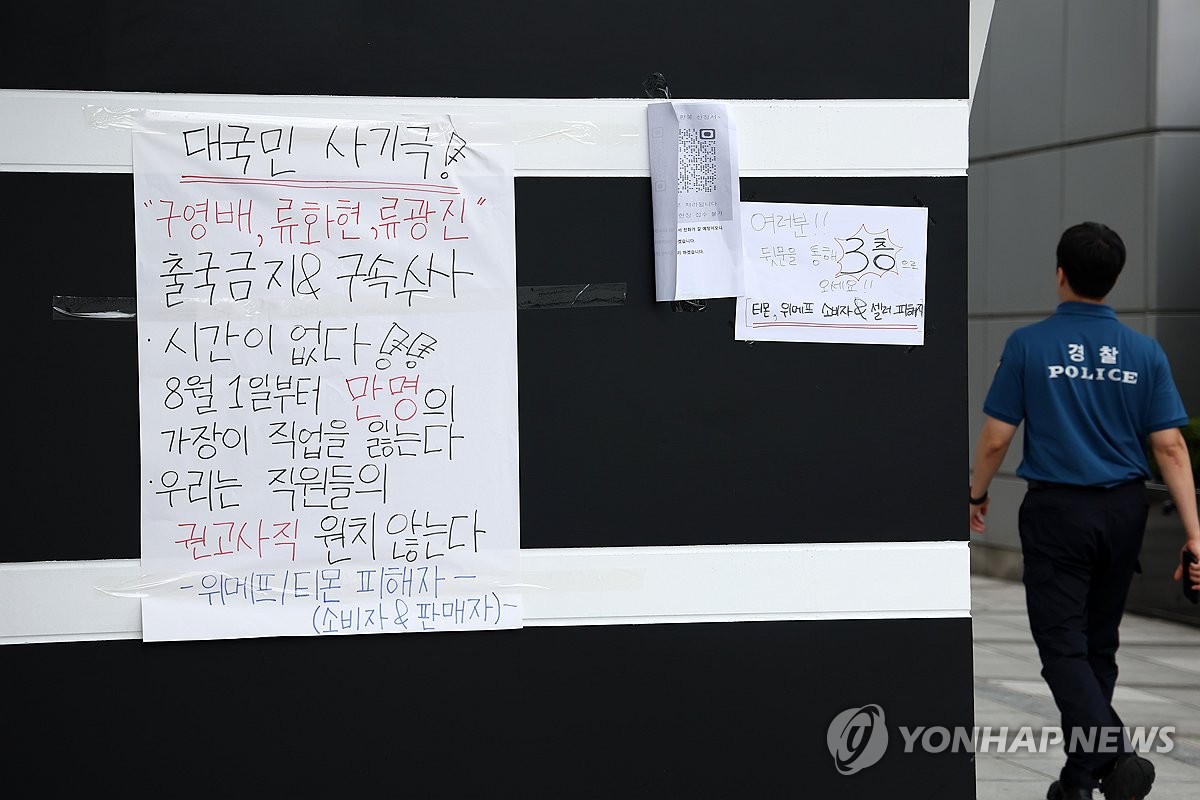 대국민 사기극!!
"구영배, 류화현, 류광진"
출국금지& 구속수사
· 시간이 없다 !!!!
8월 1일부터 만명의
가장이 직업을 잃는다
· 우리는 직원들의
권고사직 원치 않는다
- 위메프/티몬 피해자 -
(소비자 & 판매자)-
환불 신청서~
처리됩니다
현장 접수 불가
여러분!!
뒷문을 통해 3층으로
오세요!!
[티몬, 위메프 소비자 & 셀러 피해자]
경찰
POLICE
YONHAPNEWS